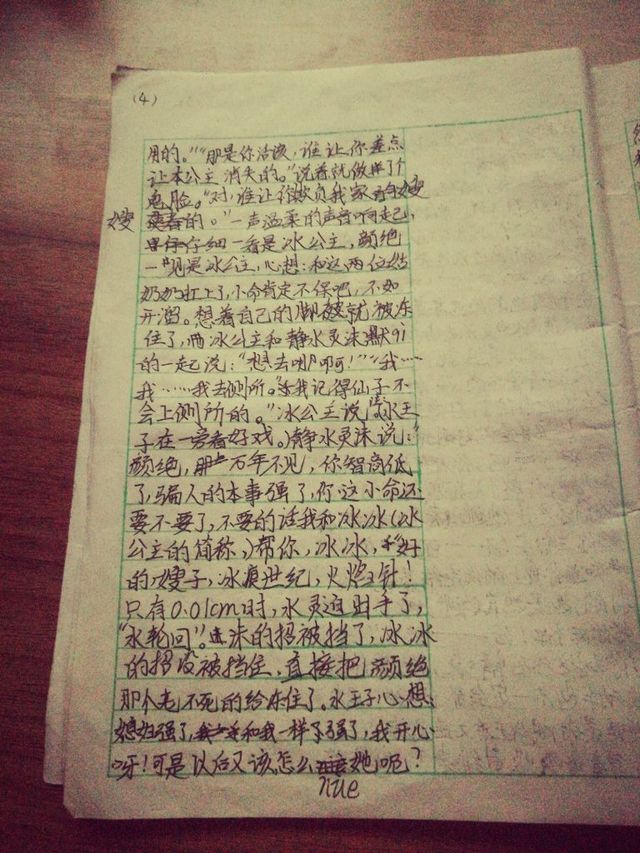 (4)
用的。”“那是你活该，谁让你差点
让本公主消失的。”说着就做了个
鬼脸。“对，谁让你欺负我家嫂
嫂的。”一声温柔的声音响起，
仔细一看是冰公主，颜绝
一见是冰公主，心想：和这两位姑
奶奶扛上了，小命肯定不保吧，不如
开溜。想着自己的脚就被冻
住了，冰公主和静水灵沫默契
的一起说：“想去哪啊！”“我……
我……我去厕所。”“我记得仙子不
会上厕所的。”冰公主说（水王
子在一旁看好戏。）静水灵沫说：“
颜绝，万年不见，你智商低
了，骗人的本事强了，你这小命还
要不要了，不要的话我和冰冰（冰
公主的简称）帮你，冰冰，”“好
的嫂子，冰痕世纪，火焰针！
只有0.01cm时，水灵迫出手了，
“水轮回”。沫的招被挡了，冰冰
的招没被挡住，直接把颜绝
那个老不死的给冻住了。水王子心想，
媳妇强了，和我一样强了，我开心
呀！可是以后又该怎么她呢？
nue